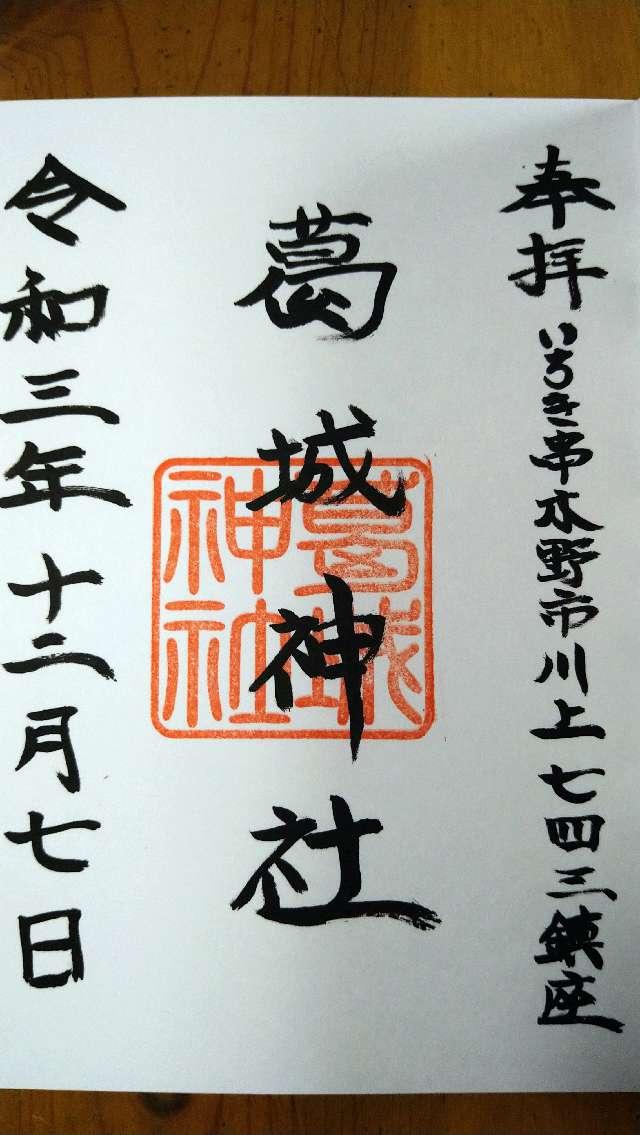 奉拝 いちき串木野市川上七四三鎮座
葛城神社
葛城
神社
令和三年十二月七日